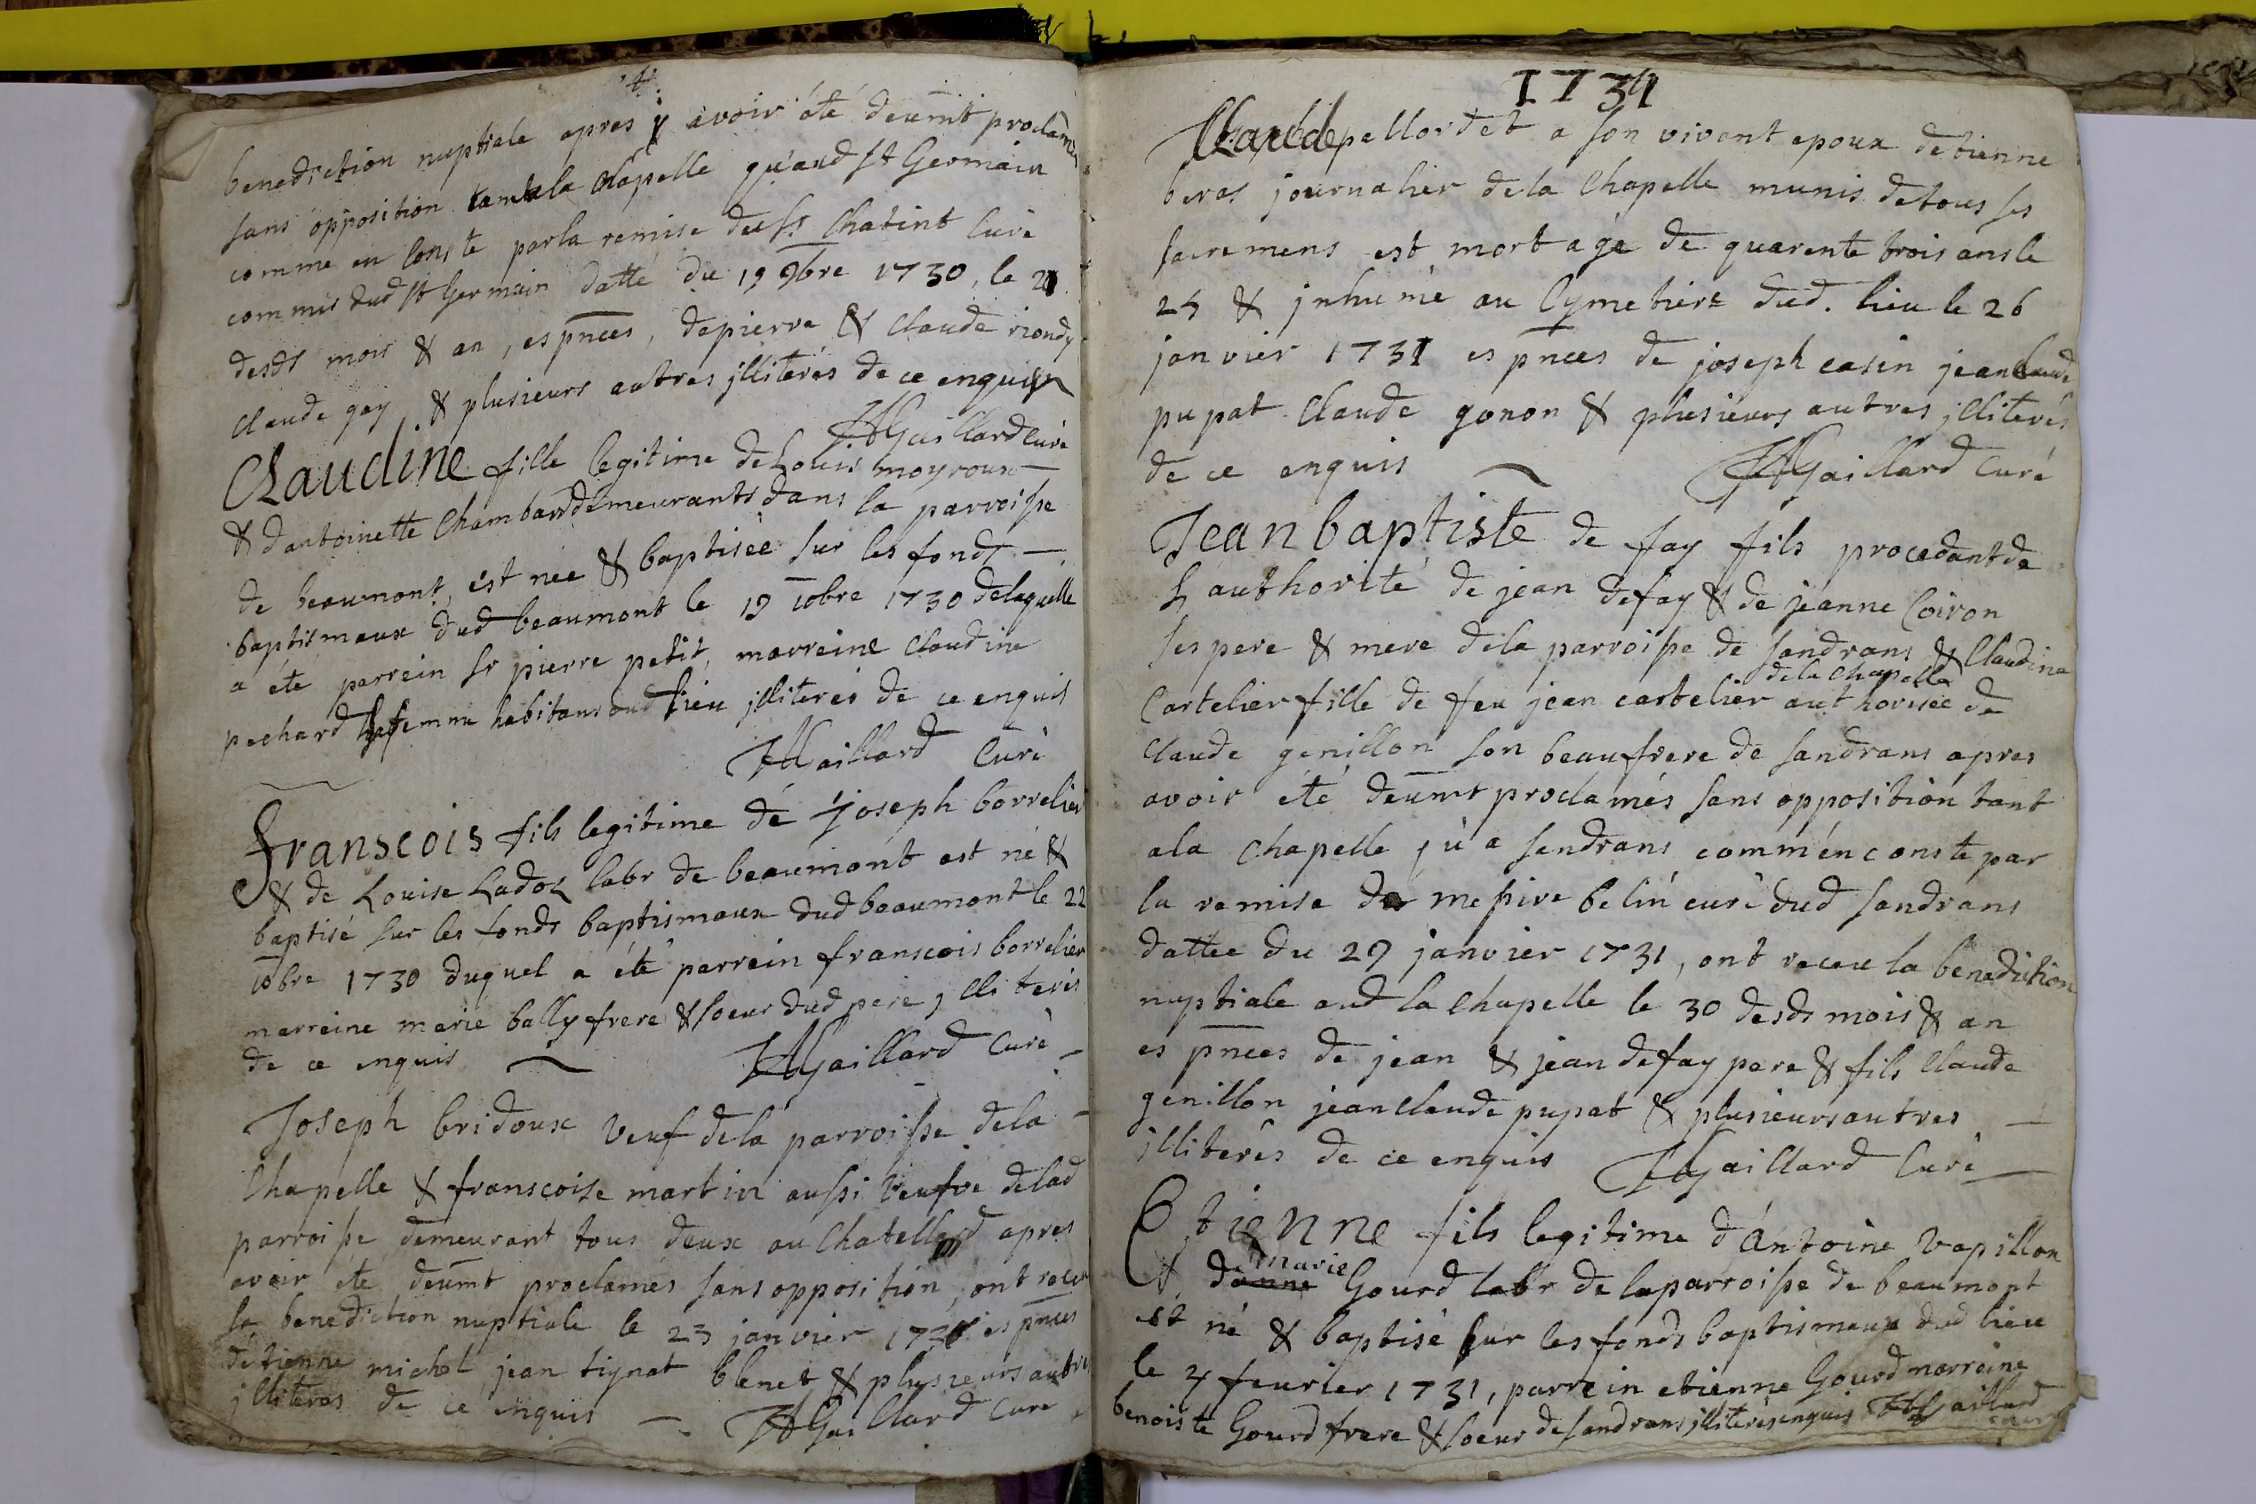 benediction nuptiale apres y avoir été deumt proclamés
sans opposition tant a la Chapelle qu'aud st Germain
comme en conste par la remise du Sr Chatint Curé
commis dud st Germain datté du 19 9bre 1730, le 21
desds mois & an, es pnces, de pierre & claude riondy
claude gay & plusieurs autres illiterés de ce enquis
JAGaillard Curé
Claudine fille legitime de Louis moyroux
& d'antoinette Chambard demeurants dans la parroisse
de beaumont, est neé & baptisée sur les fonds
baptismaux dud beaumont le 19 10bre 1730 de laquelle
a été parrein Sr pierre petit, marreine claudine
pechard sa femme habitans aud lieu illiterés de ce enquis
JAGaillard Curé
franscois fils legitime de joseph borrelier
& de Louise Ladoz labr de beaumont est né &
baptisé sur les fonds baptismaux dud beaumont le 22
10bre 1730 duquel a été parrein franscois borrelier
marreine marie bally frere & soeur dud pere, illiterés
de ce enquis JAGaillard Curé
Joseph bridoux veuf de la parroisse de la
Chapelle & franscoise martin aussi veufve de lad
parroisse demeurant tous deux au Chatellard apres
avoir été deumt proclamés sans opposition, ont receu
la benediction nuptiale le 23 janvier 1731 es pnces
d'etienne michel jean tignat blenet & plusieurs autres
illiterés de ce enquis JAGaillard Curé
1731
Claude pellordet a son vivant epoux d'etienne
beras journalier de la Chapelle munis de tous ses
sacremens est mort agé de quarente trois ans le
25 & inhumé au Cymetiere dud. lieu le 26
janvier 1731 es pnces de joseph casin jean claude
pupat claude gonon & plusieurs autres illiterés
de ce enquis JAGaillard Curé
Jean baptiste de fay fils procedant de
L'authorité de jean defay & de jeanne Coiron
ses pere & mere de la parroisse de sandrans & Claudine
de la Chapelle
Cartelier fille de feu jean cartelier authorisée de
claude genillon son beaufrere de sandrans apres
avoir été deumt proclamés sans opposition tant
a la Chapelle qu'a sandrans comm'en conste par
la remise de messire belin curé dud sandrans
dattee du 29 janvier 1731, ont receu la benediction
nuptiale aud la Chapelle le 30 desds mois & an
es pnces de jean & jean defay pere & fils claude
genillon jean claude pupat & plusieurs autres
illiterés de ce enquis JAGaillard Curé
Etienne fils legitime d'antoine vapillon
marie
& de anne Gourd labr de la parroisse de beaumont
est né & baptisé sur les fonds baptismaux dud lieu
le 4 feurier 1731, parrein etienne Gourd marreine
benoiste Gourd frere & soeur de sandrans illiterés enquis JAGaillard
curé